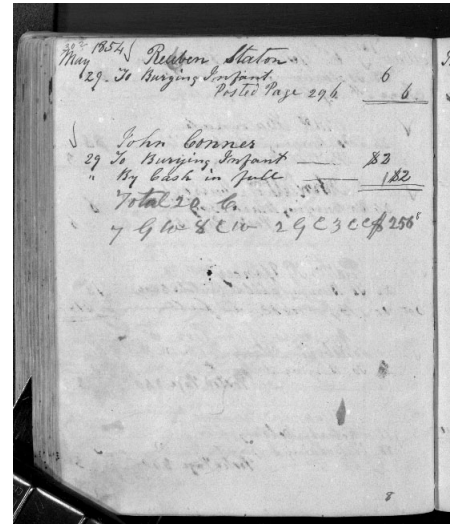 May 1854 Reuben Staton
29 To Burying Infant 6
Posted Page 296 6
John Conner
29 To Burying Infant $2
" By Cash in full $2
Total 20 C
7 G W 8 C W 2 G C 3 C C $ 256
8